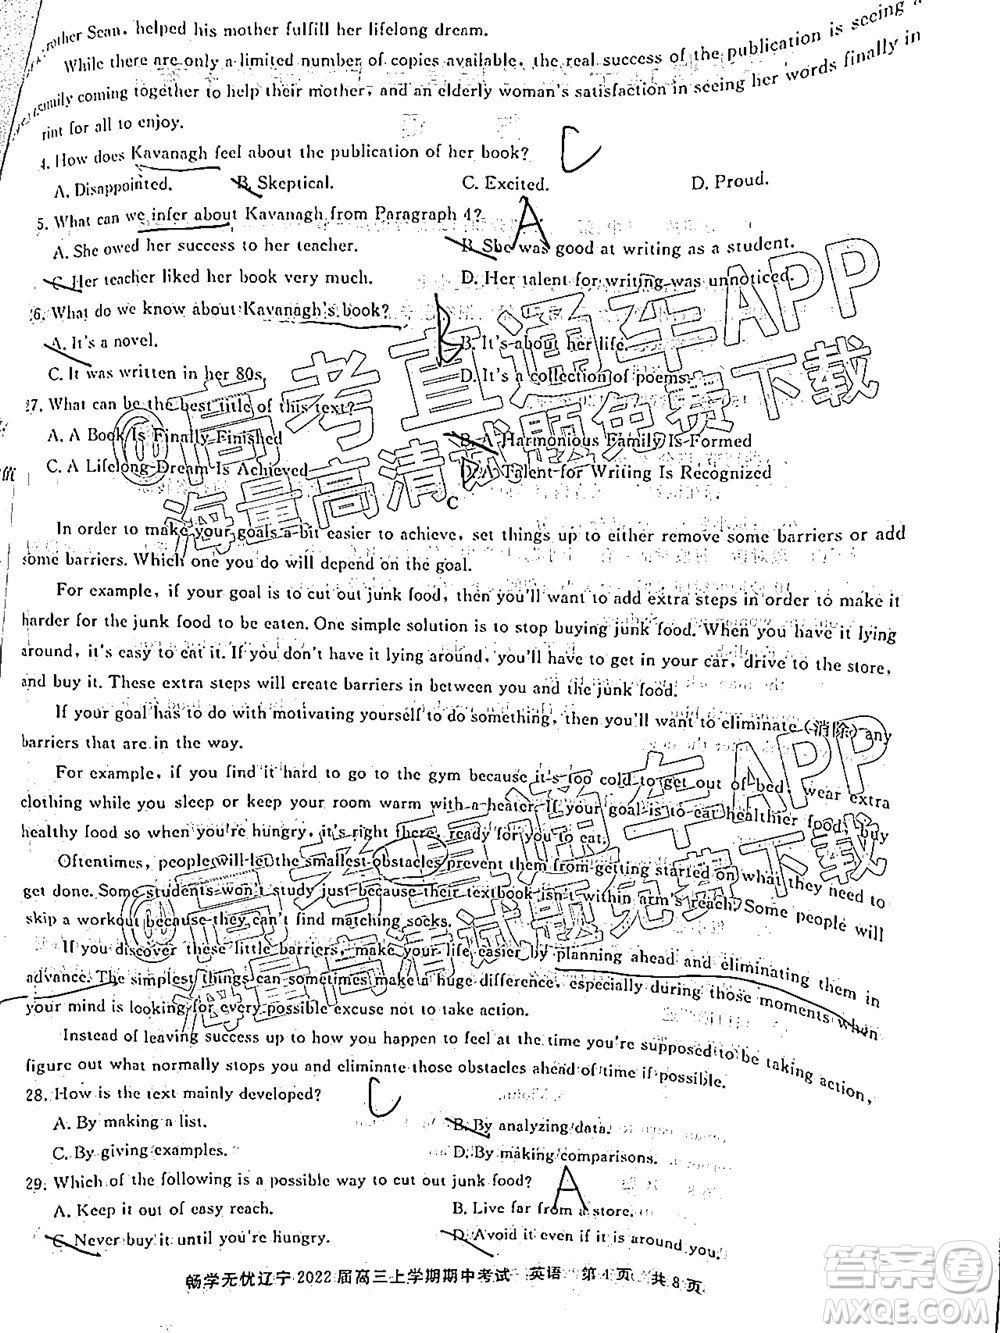 rother Sean, helped his mother fulfill her lifelong dream.
While there are only a limited number of copies available, the real success of the publication is seeing a
family coming together to help their mother, and an elderly woman's satisfaction in seeing her words finally in
rint for all to enjoy.
4. How does Kavanagh feel about the publication of her book? C
A. Disappointed. B. Skeptical. C. Excited. D. Proud.
5. What can we infer about Kavanagh from Paragraph 4? A
A. She owed her success to her teacher. B. She was good at writing as a student.
C. Her teacher liked her book very much. D. Her talent for writing was unnoticed.
6. What do we know about Kavanagh's book? B
A. It's a novel. B. It's about her life.
C. It was written in her 80s. D. It's a collection of poems.
27. What can be the best title of this text?
A. A Book Is Finally Finished B. A Harmonious Family Is Formed
C. A Lifelong Dream Is Achieved D. A Talent for Writing Is Recognized
C
In order to make your goals a bit easier to achieve, set things up to either remove some barriers or add
some barriers. Which one you do will depend on the goal.
For example, if your goal is to cut out junk food, then you'll want to add extra steps in order to make it
harder for the junk food to be eaten. One simple solution is to stop buying junk food. When you have it lying
around, it's easy to eat it. If you don't have it lying around, you'll have to get in your car, drive to the store,
and buy it. These extra steps will create barriers in between you and the junk food.
If your goal has to do with motivating yourself to do something, then you'll want to eliminate (消除) any
barriers that are in the way.
For example, if you find it hard to go to the gym because it's too cold to get out of bed, wear extra
clothing while you sleep or keep your room warm with a heater. If your goal is to eat healthier food, buy
healthy food so when you're hungry, it's right there, ready for you to eat.
Oftentimes, people will let the smallest obstacles prevent them from getting started on what they need to
get done. Some students won't study just because their textbook isn't within arm's reach. Some people will
skip a workout because they can't find matching socks.
If you discover these little barriers, make your life easier by planning ahead and eliminating them in
advance. The simplest things can sometimes make a huge difference, especially during those moments when
your mind is looking for every possible excuse not to take action.
Instead of leaving success up to how you happen to feel at the time you're supposed to be taking action,
figure out what normally stops you and eliminate those obstacles ahead of time if possible.
28. How is the text mainly developed? C
A. By making a list. B. By analyzing data.
C. By giving examples. D. By making comparisons.
29. Which of the following is a possible way to cut out junk food? A
A. Keep it out of easy reach. B. Live far from a store.
C. Never buy it until you're hungry. D. Avoid it even if it is around you.
畅学无忧辽宁2022届高三上学期期中考试 英语 第4页 共8页
@高考直通车APP
海量高清试题免费下载
@高考直通车APP
海量高清试题免费下载
答案圈
MXQE.COM